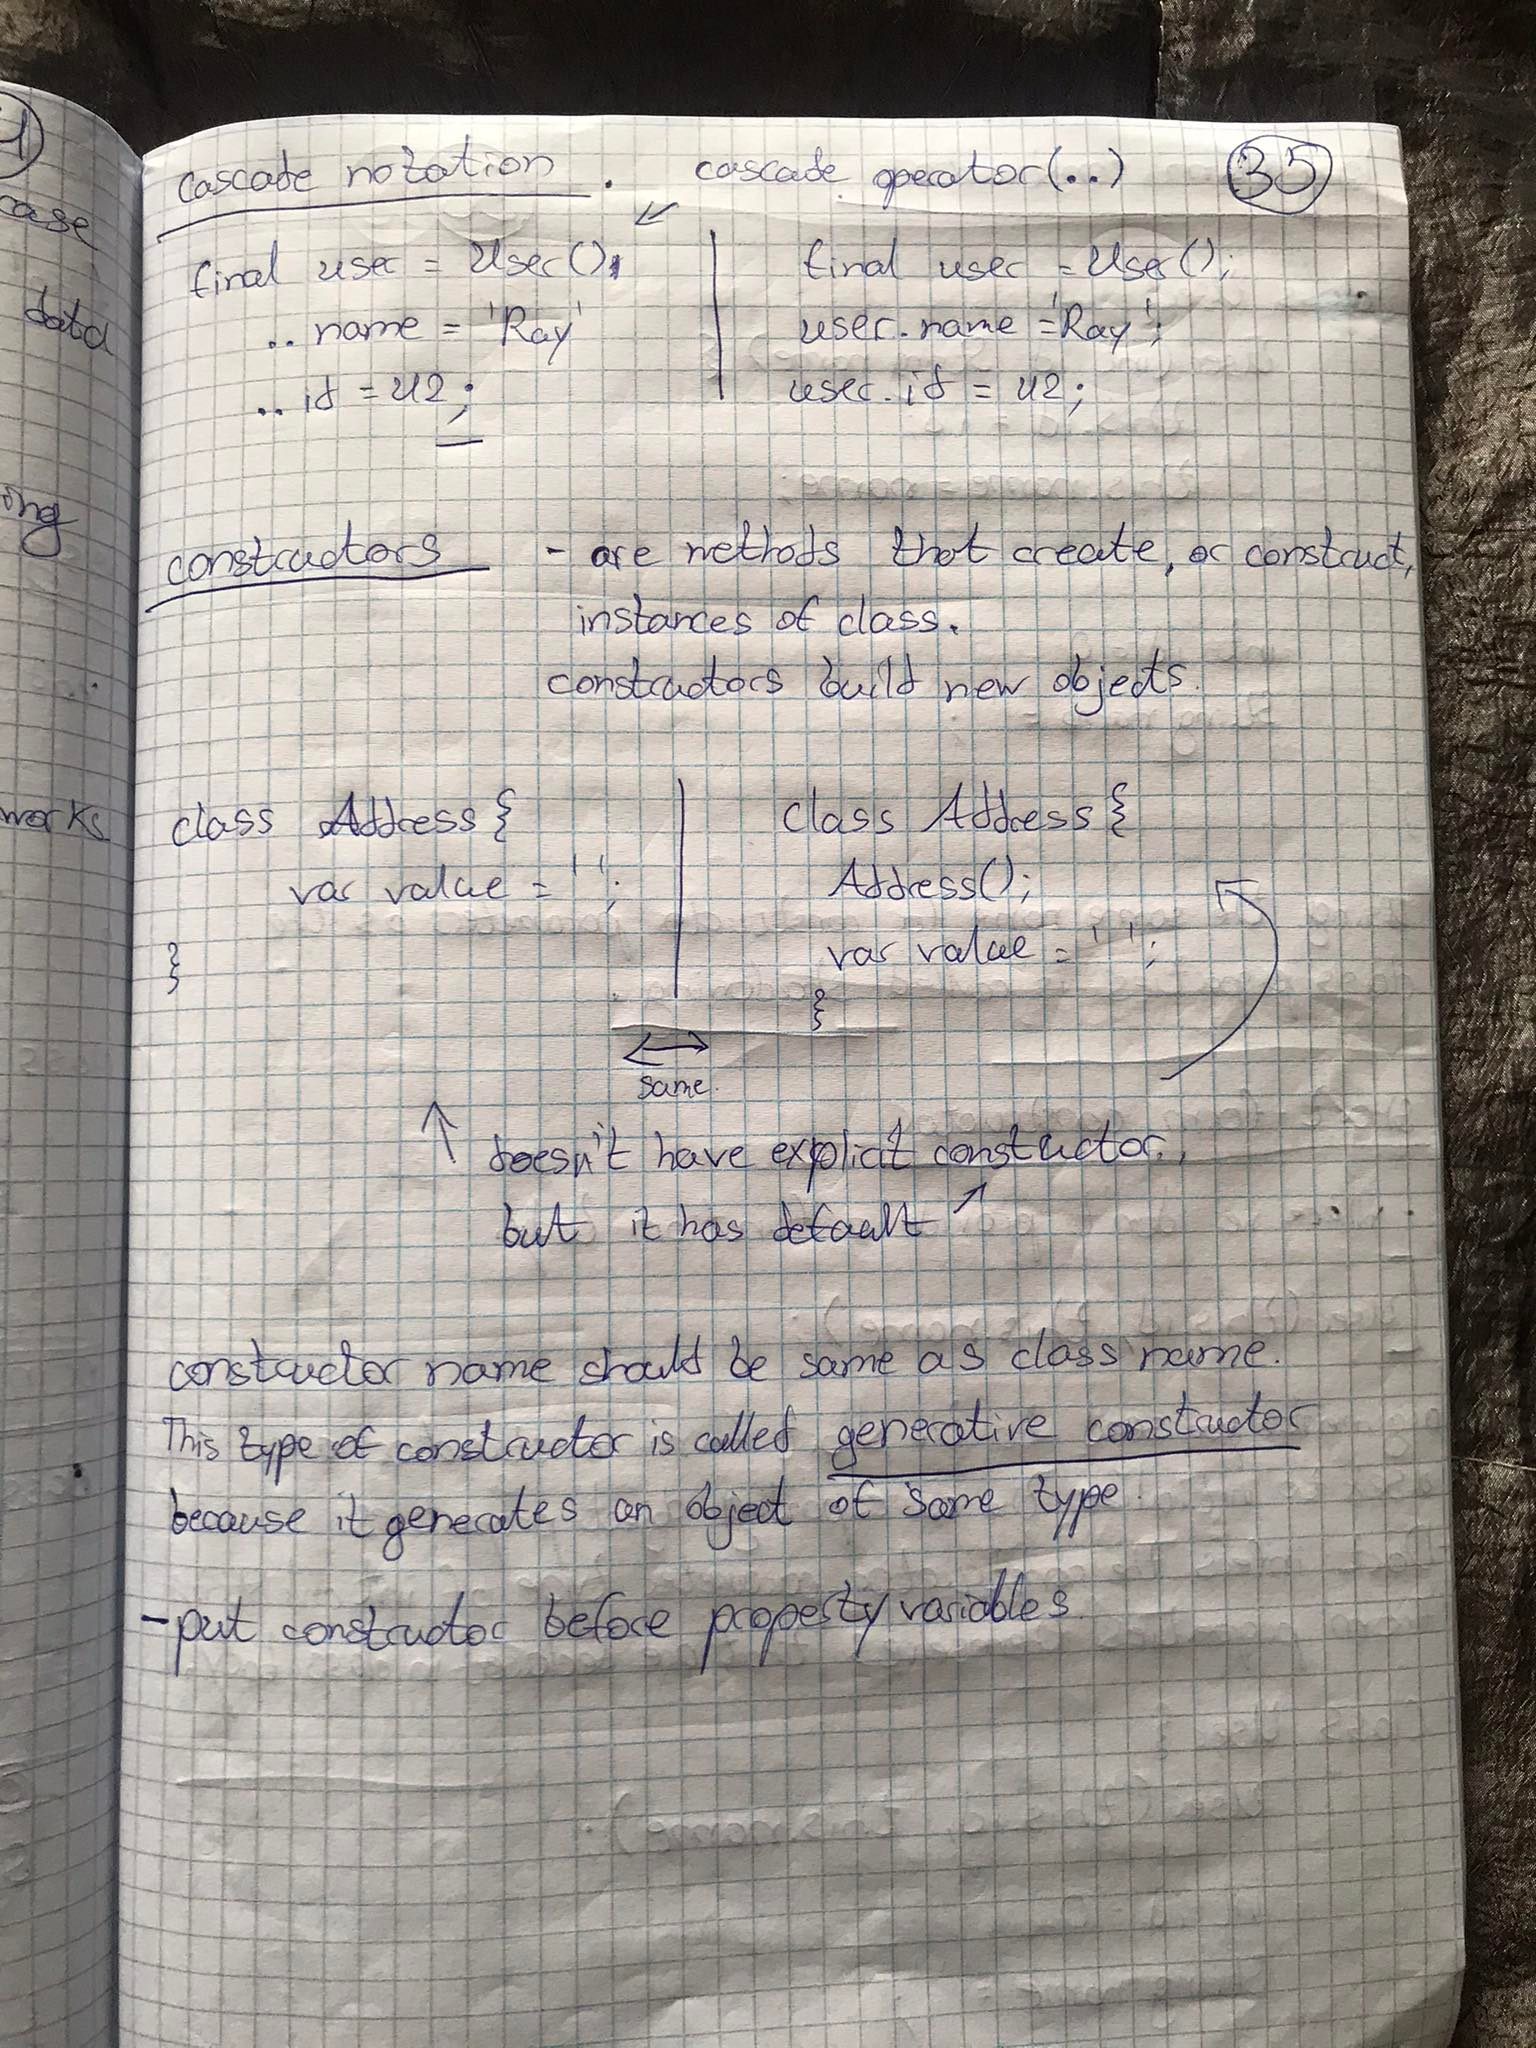 cascade notation . cascade operator(..) 35
final user = User()
.. name = 'Ray'
.. id = 42;
final user = User();
user.name = 'Ray';
user.id = 42;
constructors - are methods that create, or construct,
instances of class.
constructors build new objects.
class Address {
var value = '';
}
class Address {
Address();
var value = '';
}
same.
doesn't have explicit constructor.,
but it has default
constructor name should be same as class name.
This type of constructor is called generative constructor
because it generates an object of same type.
- put constructor before property variables.
case
data
ing
works